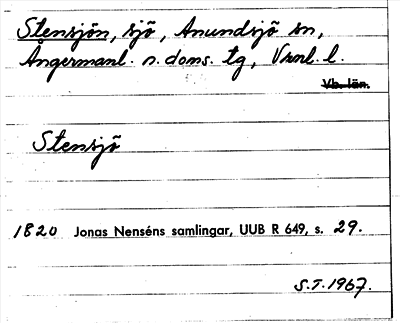 Stensjön, sjö, Anundsjö sn,
Ångermanl. n. doms. tg, Vrnl. l.
Vb. län.
Stensjö
1820 Jonas Nenséns samlingar, UUB R 649, s. 29.
S.T. 1967.